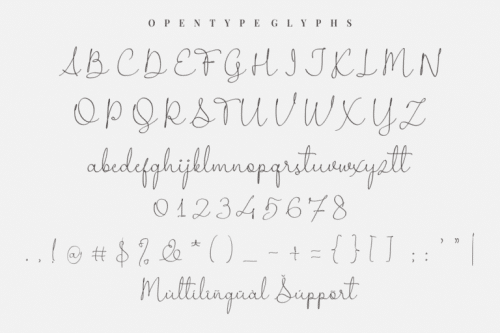 OPENTYPEGLYPHS
A B C D E F G H I J K L M N
O P Q R S T U V W X Y Z
abcdefghijklmnopqrstuvwxyztt
0 1 2 3 4 5 6 7 8
. , ! @ # $ % & * ( ) _ - + = { } [ ] ; : ' " |
Multilingual Support